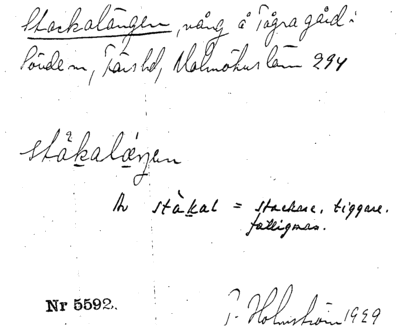 Stackalängen, vång å Tågra gård i
Sövde sn, Färs hd, Malmöhus län 294
ståkalæŋen
Av ståkal = stackare, tiggare,
fattigman.
Nr 5592.
P. Holmström 1929